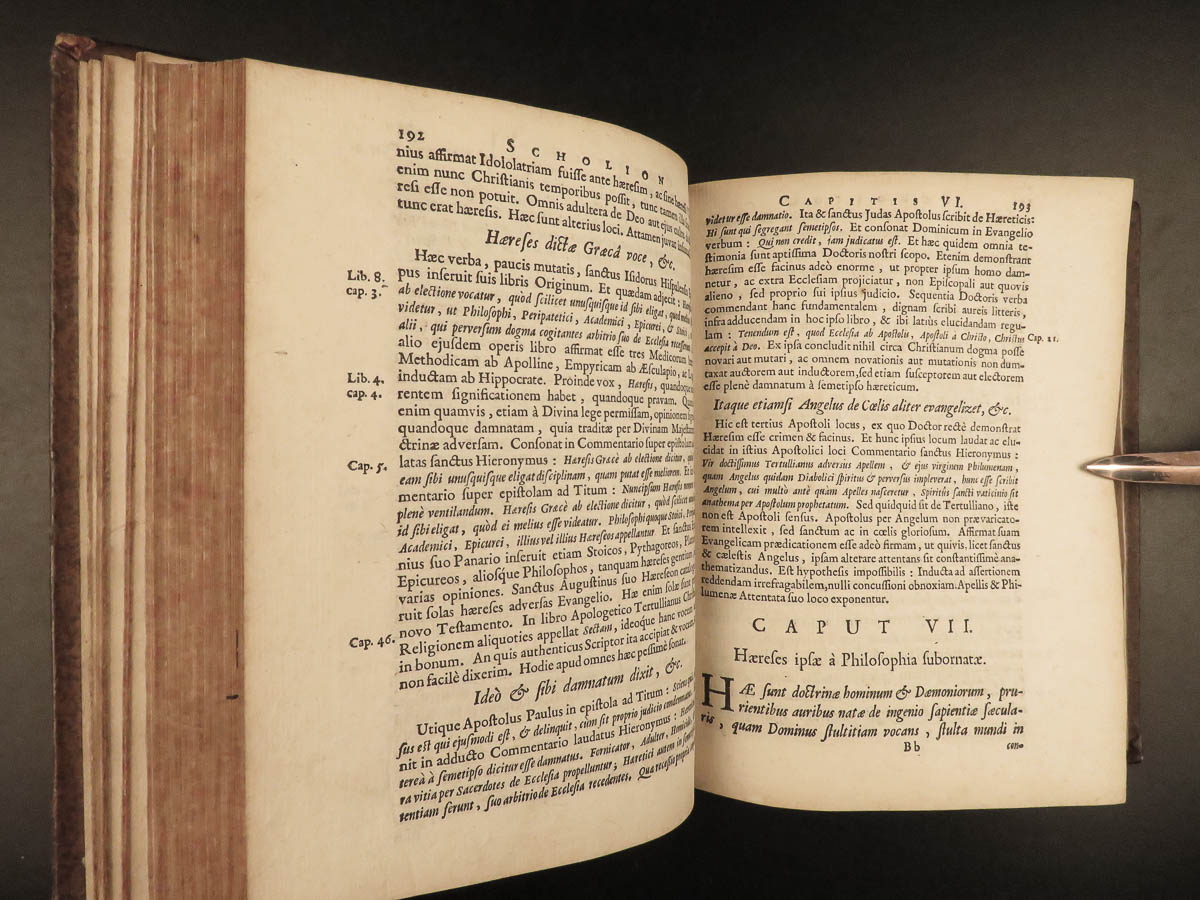 192 SCHOLION
nius affirmat Idololatriam fuiſſe ante hæreſim, ac ſine
enim nunc Chriſtianis temporibus poſſit, tunc tamen
reſi eſſe non potuit. Omnis adultera de Deo aut ejus
tunc erat hæreſis. Hæc ſunt alterius loci. Attamen
Hæreſes dictæ Græcâ voce, &c.
Hæc verba, paucis mutatis, ſanctus Iſidorus
Lib. 8. cap. 3.
pus inſeruit ſuis libris Originum. Et quædam adjecit:
ab electione vocatur, quòd ſcilicet unuſquiſque id ſibi eligat, quod
videtur, ut Philoſophi, Peripatetici, Academici, Epicurei, & Stoici,
alii, qui perverſum dogma cogitantes arbitrio ſuo de Eccleſia
alio ejuſdem operis libro affirmat eſſe tres Medicorum
Methodicam ab Apolline, Empyricam ab Æſculapio, ac
Lib. 4. cap. 4.
inductam ab Hippocrate. Proinde vox, Hæreſis, quandoque
rentem ſignificationem habet, quandoque pravam.
enim quamvis, etiam à Divina lege permiſſam, opinionem
quandoque damnatam, quia traditæ per Divinam
ctrinæ adverſam. Conſonat in Commentario ſuper
Cap. 5.
latas ſanctus Hieronymus: Hæreſis Græcè ab electione dicitur,
eam ſibi unuſquiſque eligat diſciplinam, quam putat eſſe meliorem. Et
mentario ſuper epiſtolam ad Titum: Nuncipſum
plenè ventilandum. Hæreſis Græcè ab electione dicitur, quod
id ſibi eligat, quòd ei melius eſſe videatur. Philoſophi quoque Stoici,
Academici, Epicurei, illius vel illius Hæreſeos appellantur. Et
nius ſuo Panario inſeruit etiam Stoicos, Pythagoreos,
Epicureos, alioſque Philoſophos, tanquam hæreſes gentium
varias opiniones. Sanctus Auguſtinus ſuo Hæreſeon
ruit ſolas hæreſes adverſas Evangelio. Hæ enim ſolæ
novo Teſtamento. In libro Apologetico Tertullianus
Cap. 46.
Religionem aliquoties appellat Sectam, ideoque hanc vocem
in bonum. An quis authenticus Scriptor ita accipiat &
non facilè dixerim. Hodie apud omnes hæc peſſimè ſonat.
Ideò & ſibi damnatum dixit, &c.
Utique Apoſtolus Paulus in epiſtola ad Titum:
ſus eſt qui ejuſmodi eſt, & delinquit, cùm ſit proprio judicio condemnatus.
nit in adducto Commentario laudatus Hieronymus:
tereà à ſemetipſo dicitur eſſe damnatus. Fornicator, Adulter, Homicida,
ra vitia per Sacerdotes de Eccleſia propelluntur; Hæretici autem in
tentiam ferunt, ſuo arbitrio de Eccleſia recedentes. Quæ receſſio
CAPITIS VI. 193
videtur eſſe damnatio. Ita & ſanctus Judas Apoſtolus ſcribit de Hæreticis:
Hi ſunt qui ſegregant ſemetipſos. Et conſonat Dominicum in Evangelio
verbum: Qui non credit, jam judicatus eſt. Et hæc quidem omnia te-
ſtimonia ſunt aptiſſima Doctoris noſtri ſcopo. Etenim demonſtrant
hæreſim eſſe facinus adeò enorme, ut propter ipſum homo dam-
netur, ac extra Eccleſiam projiciatur, non Epiſcopali aut quovis
alieno, ſed proprio ſui ipſius judicio. Sequentia Doctoris verba
commendant hanc fundamentalem, dignam ſcribi aureis litteris,
infra adducendam in hoc ipſo libro, & ibi latiùs elucidandam regu-
lam: Tenendum eſt, quod Eccleſia ab Apoſtolis, Apoſtoli à Chriſto, Chriſtus
Cap. 21.
accepit à Deo. Ex ipſa concludit nihil circa Chriſtianum dogma poſſe
novari aut mutari, ac omnem novationis aut mutationis non dum-
taxat auctorem aut inductorem, ſed etiam ſuſceptorem aut electorem
eſſe plenè damnatum à ſemetipſo hæreticum.
Itaque etiamſi Angelus de Cœlis aliter evangelizet, &c.
Hic eſt tertius Apoſtoli locus, ex quo Doctor rectè demonſtrat
Hæreſim eſſe crimen & facinus. Et hunc ipſius locum laudat ac elu-
cidat in iſtius Apoſtolici loci Commentario ſanctus Hieronymus:
Vir doctiſſimus Tertullianus adverſus Apellem, & ejus virginem Philumenam,
quam Angelus quidam Diabolici ſpiritus & perverſus impleverat, hunc eſſe ſcribit
Angelum, cui multò antè quàm Apelles naſceretur, Spiritûs ſancti vaticinio ſit
anathema per Apoſtolum prophetatum. Sed quidquid ſit de Tertulliano, iſte
non eſt Apoſtoli ſenſus. Apoſtolus per Angelum non prævaricato-
rem intellexit, ſed ſanctum ac in cœlis glorioſum. Affirmat ſuam
Evangelicam prædicationem eſſe adeò firmam, ut quivis, licet ſanctus
& cæleſtis Angelus, ipſam alterare attentans ſit conſtantiſſimè ana-
thematizandus. Eſt hypotheſis impoſſibilis: Inducta ad aſſertionem
reddendam irrefragabilem, nulli concuſſioni obnoxiam. Apellis & Phi-
lumenæ Attentata ſuo loco exponentur.
CAPUT VII.
Hæreſes ipſæ à Philoſophia ſubornatæ.
HÆ ſunt doctrinæ hominum & Dæmoniorum, pru-
rientibus auribus natæ de ingenio ſapientiæ ſæcula-
ris, quam Dominus ſtultitiam vocans, ſtulta mundi in
Bb con-